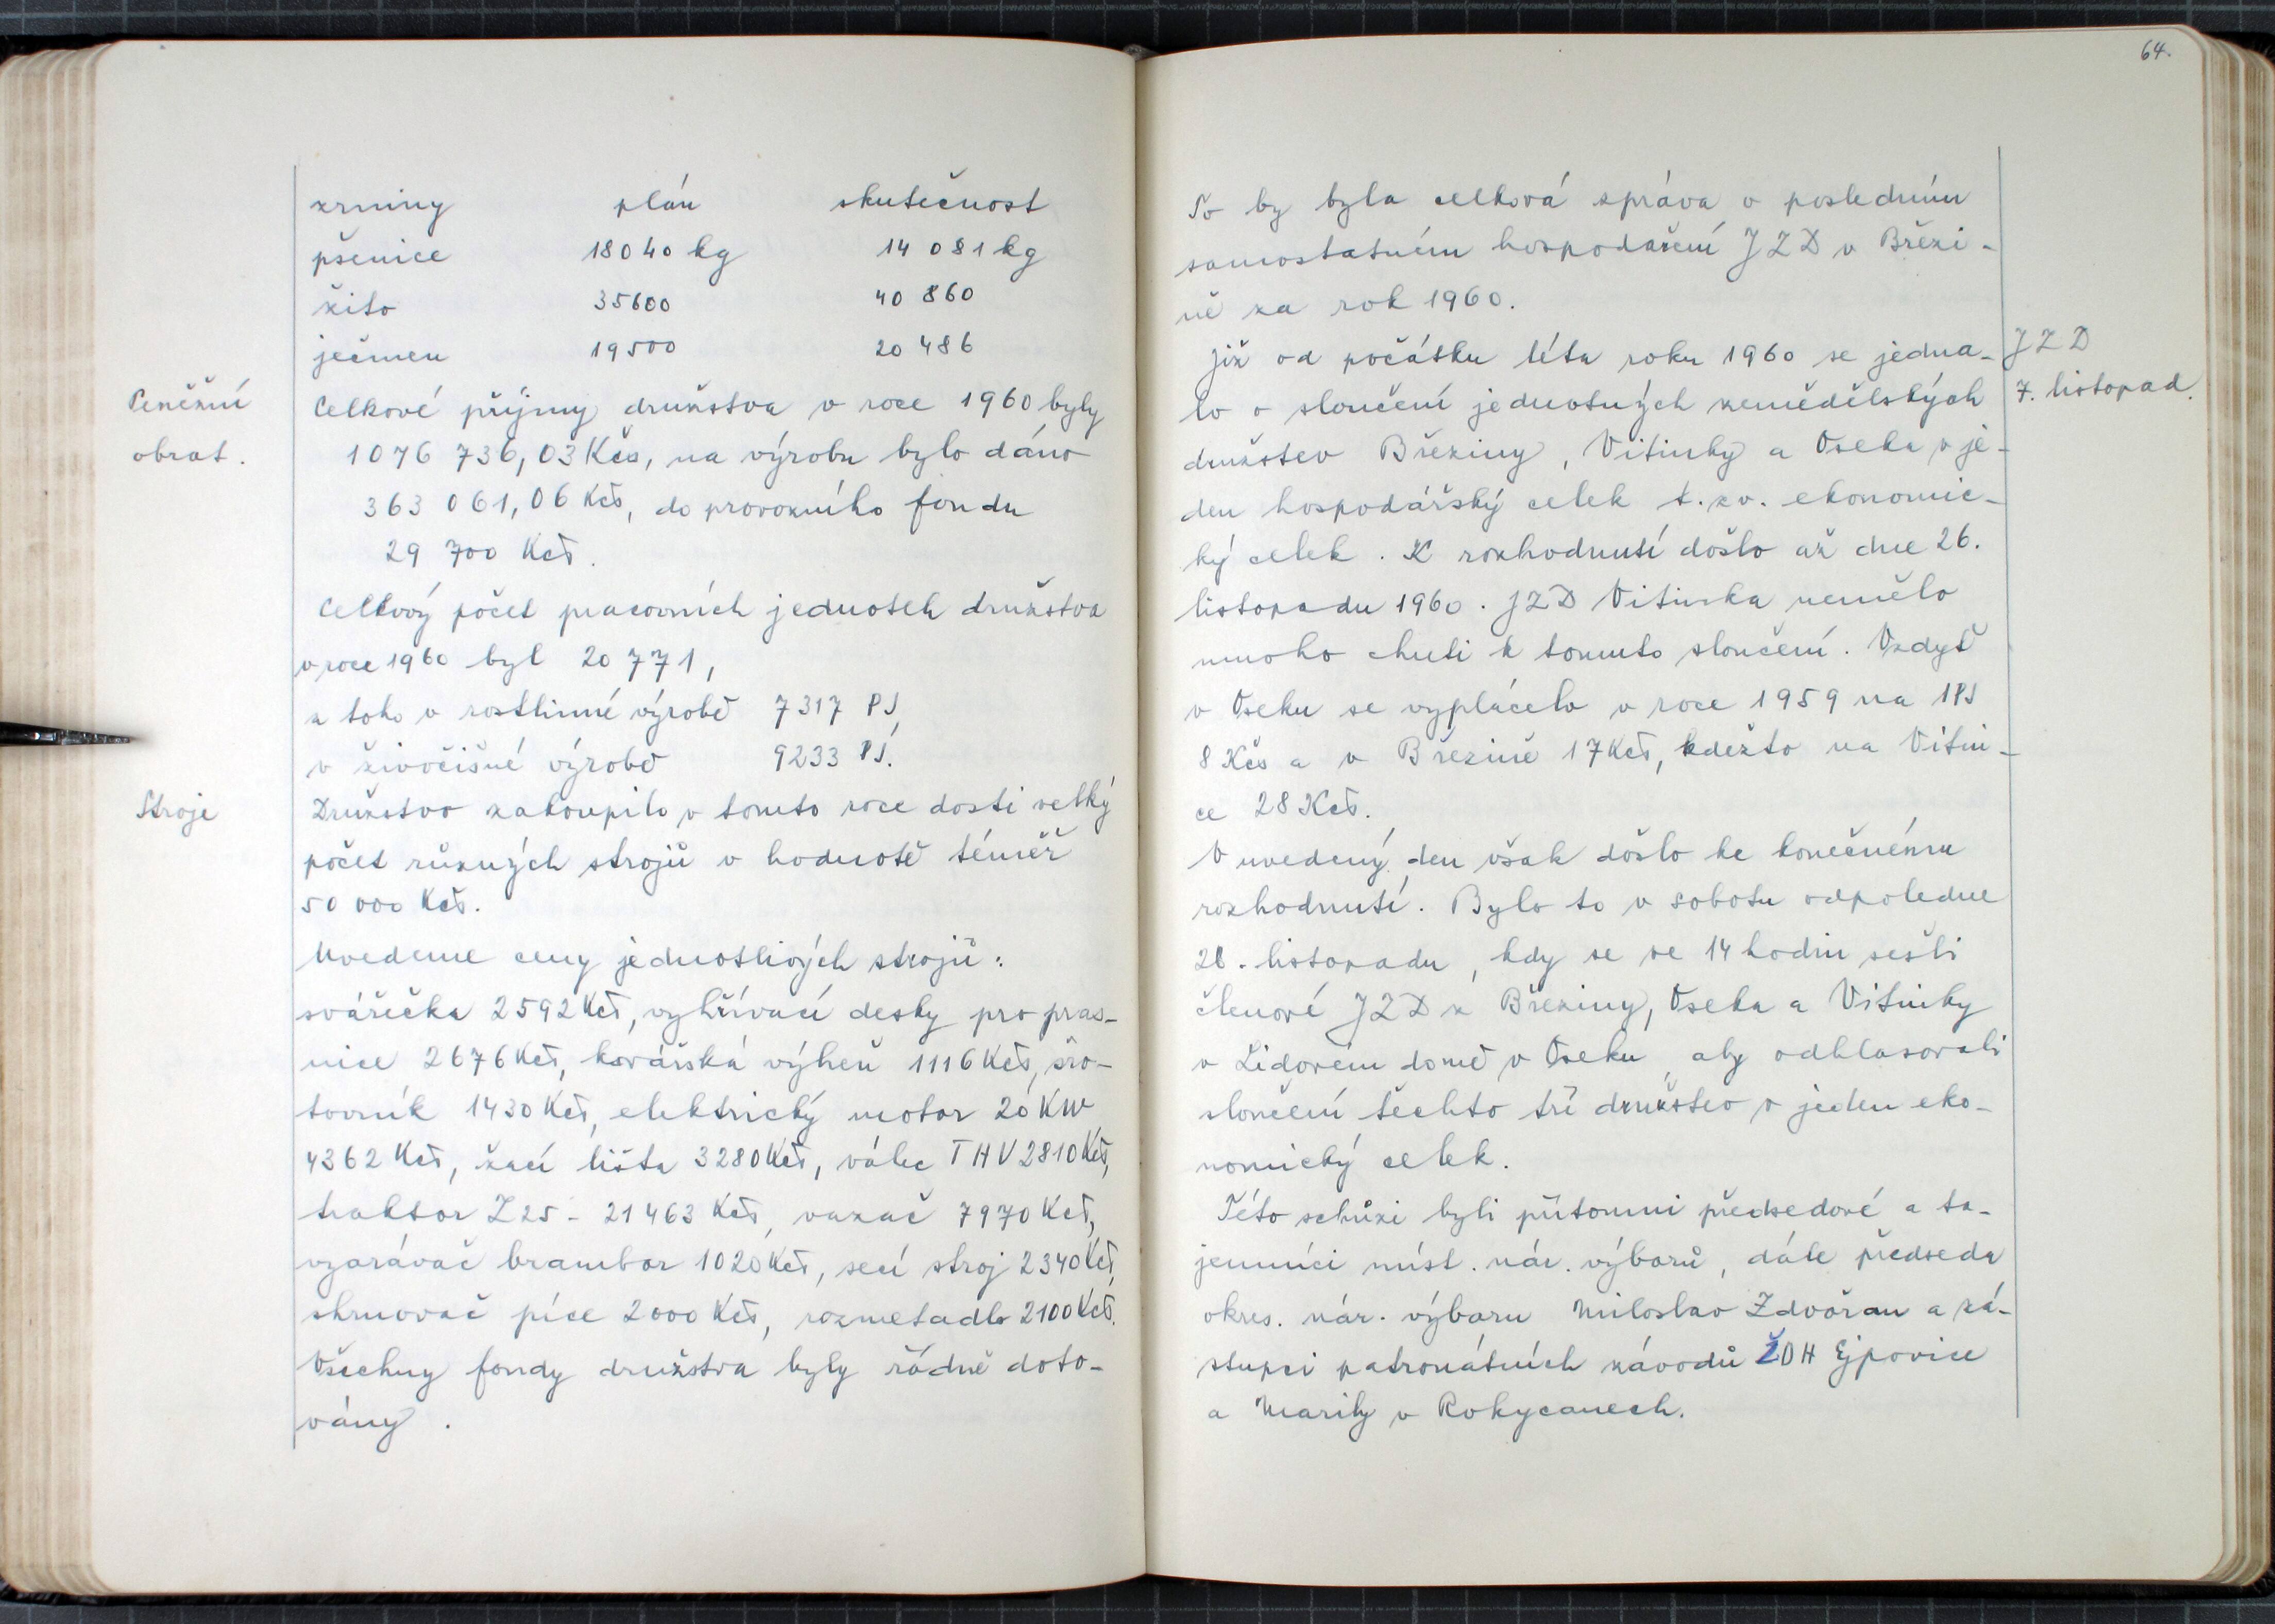 zrniny plán skutečnost
pšenice 18040 kg 14 081 kg
žito 35600 40 860
ječmen 19500 20 486
Peněžní
obrat.
Celkové příjmy družstva v roce 1960 byly
1076 736,03 Kčs, na výrobu bylo dáno
363 061,06 Kčs, do provozního fondu
29 700 Kčs.
Celkový počet pracovních jednotek družstva
v roce 1960 byl 20 771,
z toho v rostlinné výrobě 7317 PJ,
v živočišné výrobě 9233 PJ.
Stroje
Družstvo zakoupilo v tomto roce dosti velký
počet různých strojů v hodnotě téměř
50 000 Kčs.
Uvedeme ceny jednotlivých strojů:
svářečka 2592 Kčs, vyhřívací desky pro pras-
nice 2676 Kčs, kovářská výheň 1116 Kčs, šro-
tovník 1430 Kčs, elektrický motor 20 KW
4362 Kčs, žací lišta 3280 Kčs, válec THV 2810 Kčs,
traktor Z25 - 21463 Kčs, vazač 7970 Kčs,
vyorávač brambor 1020 Kčs, secí stroj 2340 Kčs,
shrnovač píce 2000 Kčs, rozmetadlo 2100 Kčs.
Všechny fondy družstva byly řádně doto-
vány.
64.
To by byla celková zpráva o posledním
samostatném hospodaření JZD v Březi-
ně za rok 1960.
Již od počátku léta roku 1960 se jedna-
lo o sloučení jednotných zemědělských
družstev Březiny, Vitinky a Oseka v je-
den hospodářský celek t. zv. ekonomic-
ký celek. K rozhodnutí došlo až dne 26.
listopadu 1960. JZD Vitinka nemělo
mnoho chuti k tomuto sloučení. Vždyť
v Oseku se vyplácelo v roce 1959 na 1PJ
8 Kčs a v Březině 17 Kčs, kdežto na Vitin-
ce 28 Kčs.
V uvedený den však došlo ke konečnému
rozhodnutí. Bylo to v sobotu odpoledne
26. listopadu, kdy se ve 14 hodin sešli
členové JZD z Březiny, Oseka a Vitinky
v Lidovém domě v Oseku, aby odhlasovali
sloučení těchto tří družstev v jeden eko-
nomický celek.
Této schůzi byli přítomni předsedové a ta-
jemníci míst. nár. výborů, dále předseda
okres. nár. výboru Miloslav Zdvořan a zá-
stupci patronátních závodů ŽDH Ejpovice
a Marily v Rokycanech.
JZD
7. listopad.